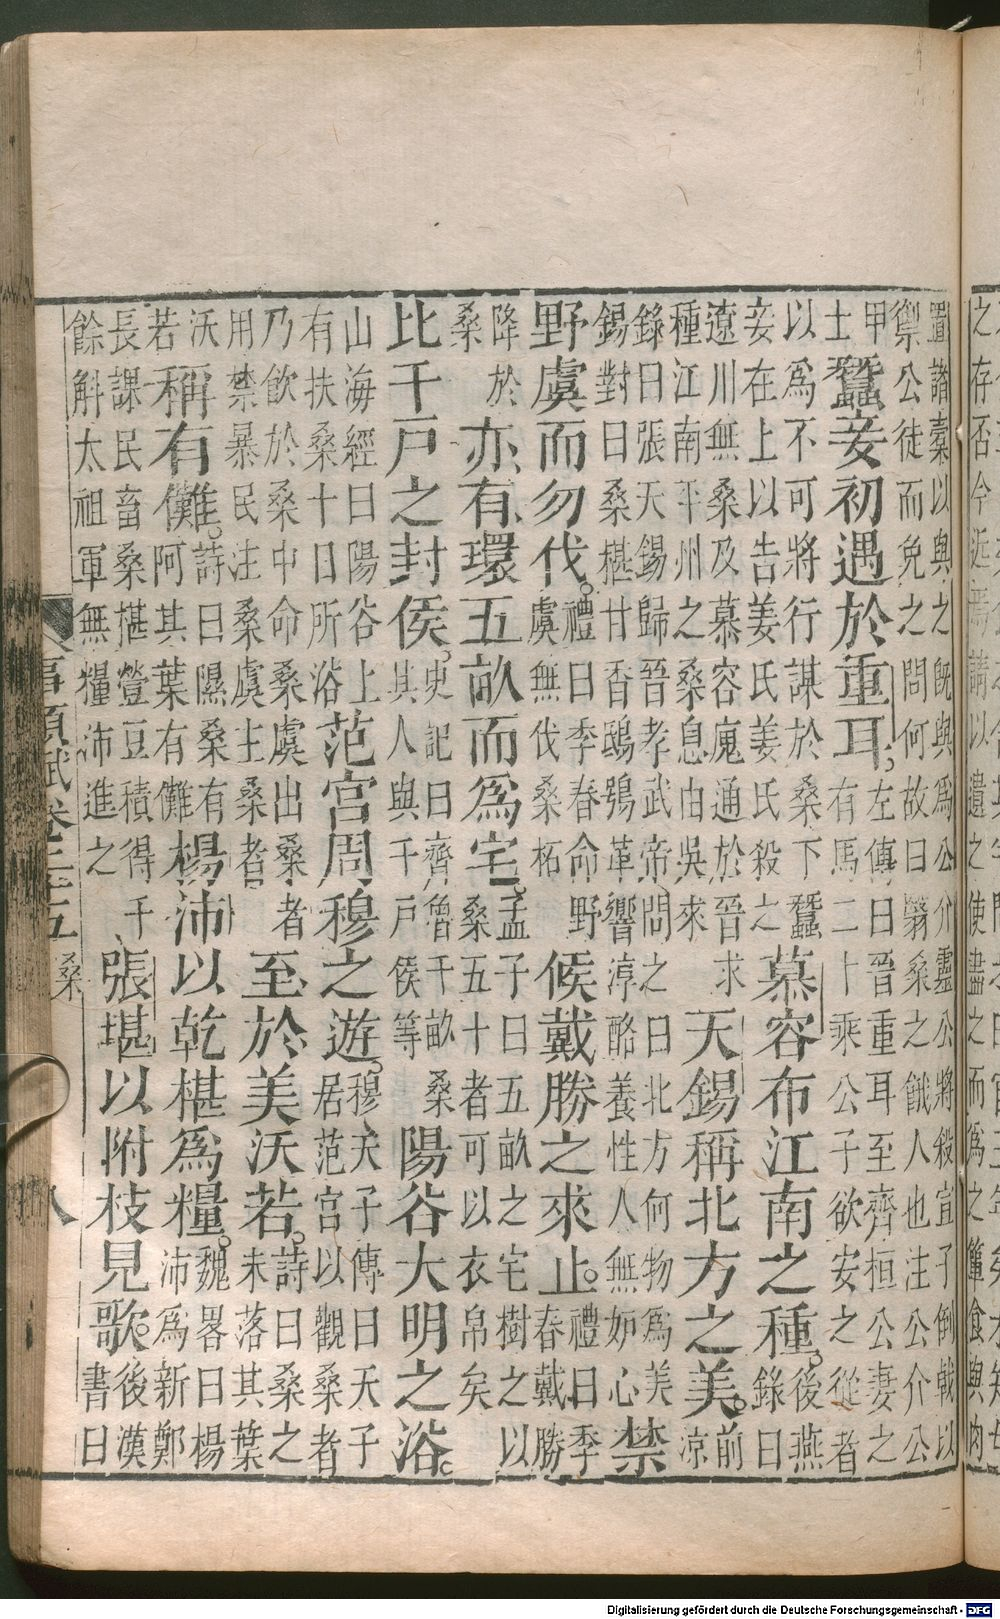 之存否今近焉請以遺之使盡之而為之簞食與肉
置諸橐以與之既與爲公介靈公將殺宣子倒戟以
禦公徒而免之問何故曰翳桑之餓人也注公介公
甲
士
蠶妾初遇於重耳。
左傳曰晉重耳至齊桓公妻之
有馬二十乘公子欲安之從者
以爲不可將行謀於桑下蠶
妾在上以告姜氏姜氏殺之
慕容布江南之種。
後燕
錄曰
遼川無桑及慕容廆通於晉求
種江南平州之桑息由吳來
天錫稱北方之美。
前
涼
錄曰張天錫歸晉孝武帝問之曰北方何物爲美
錫對曰桑椹甘香鴟鴞革響淳酪養性人無妬心
禁
野虞而勿伐。
禮曰季春命野
虞無伐桑柘
候戴勝之來止。
禮曰季
春戴勝
降於
桑
亦有環五畝而爲宅。
孟子曰五畝之宅樹之以
桑五十者可以衣帛矣
比千戸之封侯。
史記曰齊魯千畝桑
其人與千戸侯等
陽谷大明之浴。
山海經曰陽谷上
有扶桑十日所浴
范宮周穆之遊。
穆天子傳曰天子
居范宮以觀桑者
乃飲於桑中命桑虞出桑者
用禁暴民注桑虞主桑者
至於美沃若。
詩曰桑之
未落其葉
沃
若
稱有儺。
詩曰隰桑有
阿其葉有儺
楊沛以乾椹爲糧。
魏畧曰楊
沛爲新鄭
長課民畜桑椹豆積得千
餘斛太祖軍無糧沛進之
張堪以附枝見歌。
後漢
書曰
事類賦卷二十五 桑 八
Digitalisierung gefördert durch die Deutsche Forschungsgemeinschaft - DFG